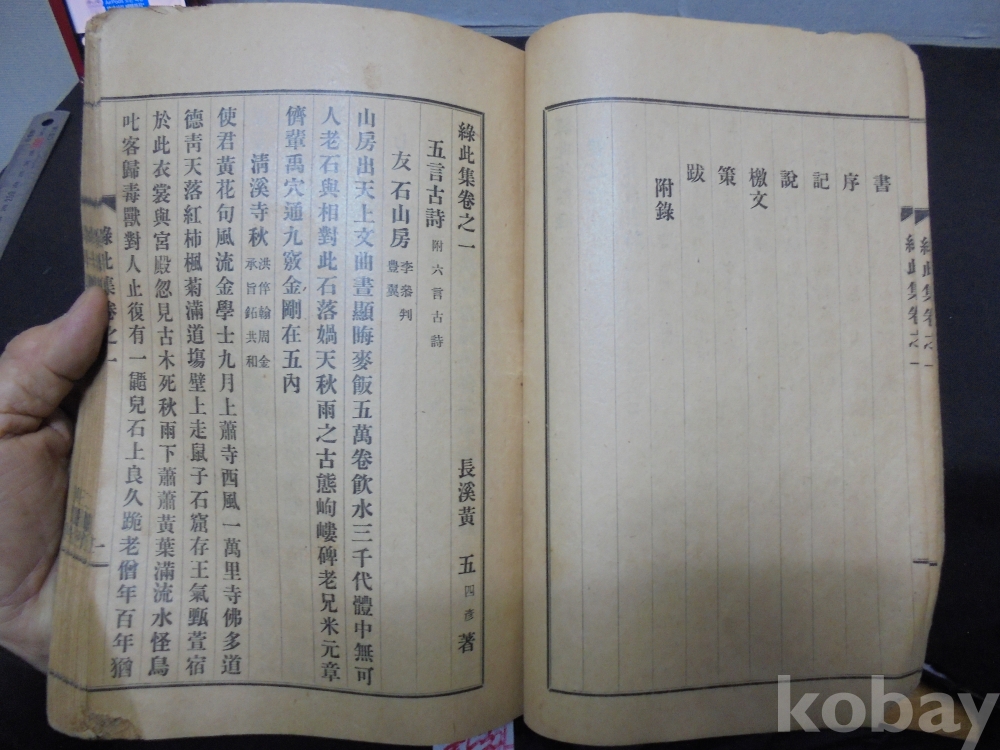 書
序
記
說
檄文
策
跋
附錄
綠此集卷之一
綠此集卷之一 長溪黃 五 四彥 著
五言古詩 附六言古詩
友石山房 李參判豊翼
山房出天上文曲晝顯晦麥飯五萬卷飮水三千代體中無可
人老石與相對此石落媧天秋雨之古態岣嶁碑老兄米元章
儕輩禹穴通九竅金剛在五內
淸溪寺秋 洪侍翰周金承旨鉐共和
使君黃花句風流金學士九月上蕭寺西風一萬里寺佛多道
德靑天落紅柿楓菊滿道塲壁上走鼠子石窟存王氣甄萱宿
於此衣裳與宮殿忽見古木死秋雨下蕭蕭黃葉滿流水怪鳥
叱客歸毒獸對人止復有一鼯兒石上良久跪老僧年百年猶
綠此集卷之一
一
kobay